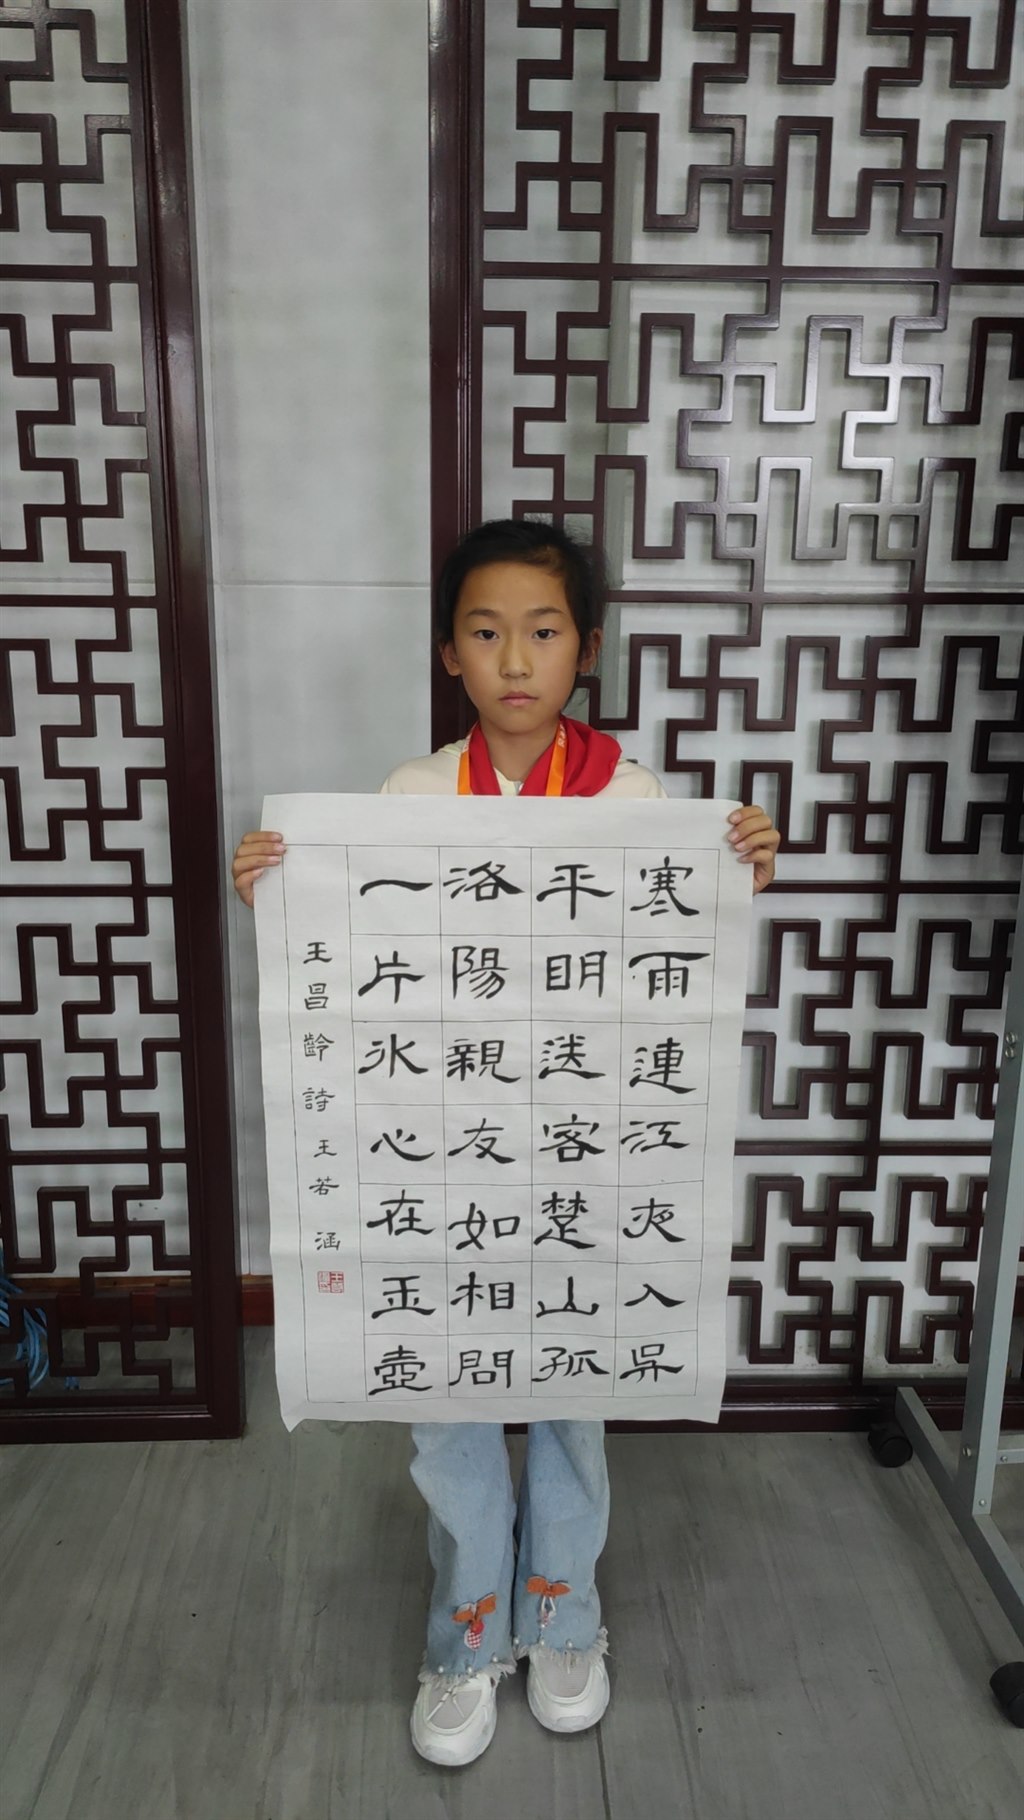 寒雨連江夜入吴
平明送客楚山孤
洛陽親友如相問
一片氷心在玉壺
王昌齡詩 王若涵